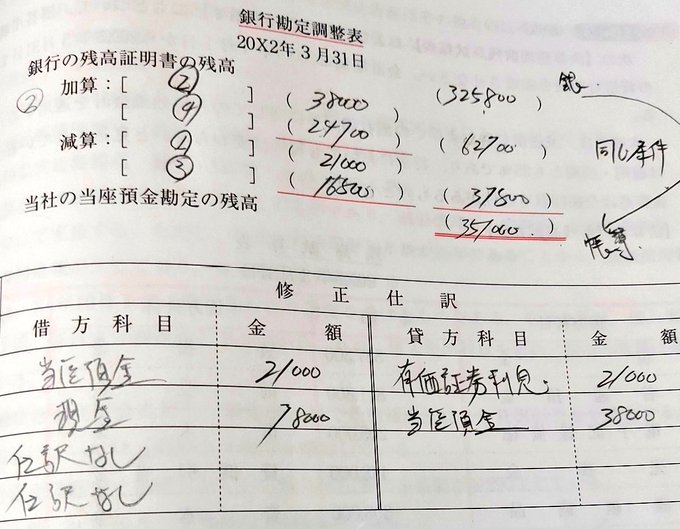 銀行勘定調整表
20X2年3月31日
銀行の残高証明書の残高 (325800)
② 加算：[ ② ] (38000)
[ ④ ] (24700) (62700)
減算：[ ① ] (21000)
[ ③ ] (16500) (37800)
当社の当座預金勘定の残高 (351000)
銀
同じ条件
帳簿
修正仕訳
借方科目 金額 貸方科目 金額
当座預金 21000 有価証券利息 21000
現金 78000 当座預金 38000
仕訳なし
仕訳なし